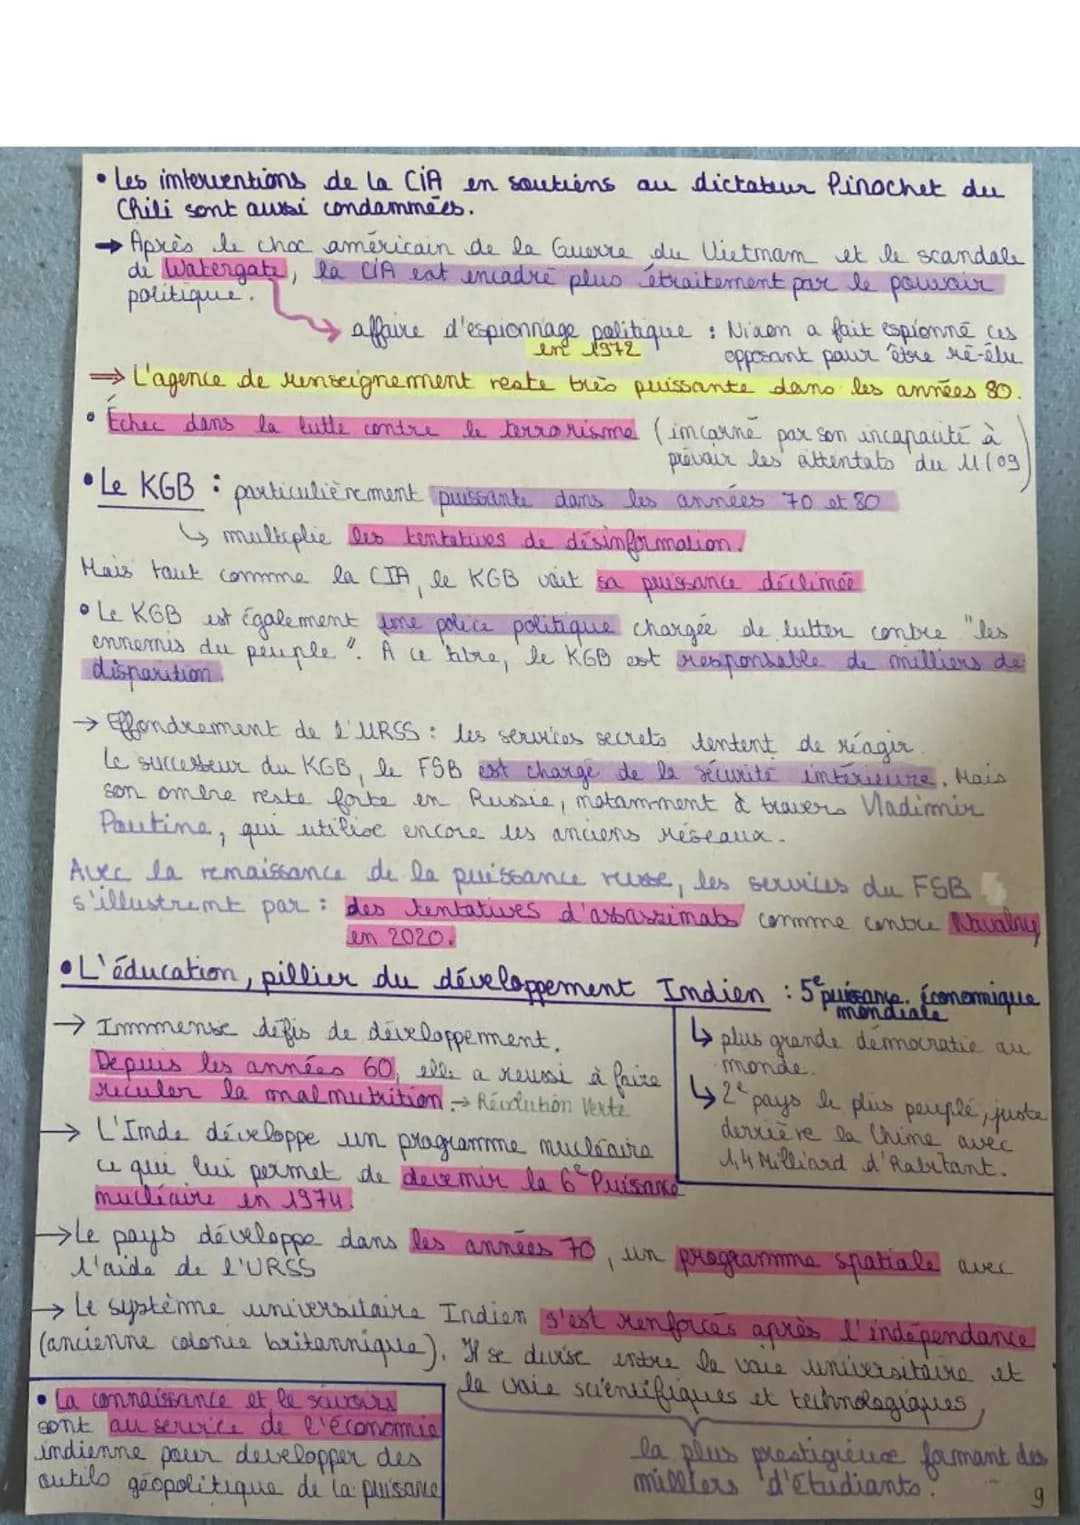 • Les interventions de la CiA en soutiens au dictateur Pinochet du
Chili sont aussi condamnées.
→ Après le choc américain de la Guerre du Vietnam et le scandale
de Watergate, la CIA est encadré plus étraitement par le pouvoir
politique.
affaire d'espionnage politique : Nixon a fait espionné ces
en 1972 opposant pour être ré-élu
⇒ L'agence de renseignement reste très puissante dans les années 80.
• Échec dans la lutte contre le terrorisme (incarné par son incapacité à
prévoir les attentats du 11/09)
• Le KGB : particulièrement puissante dans les années 70 et 80
↳ multiplie les tentatives de désinformation.
Mais tout comme la CIA, le KGB voit sa puissance déclinée
• Le KGB est également une police politique chargée de lutter contre "les
ennemis du peuple". A ce titre, le KGB est responsable de milliers de
disparition
→ Effondrement de l'URSS : les services secrets tentent de réagir.
Le successeur du KGB, le FSB est chargé de la sécurité intérieure. Mais
son ombre reste forte en Russie, notamment à travers Vladimir
Poutine, qui utilise encore les anciens réseaux.
Avec la renaissance de la puissance russe, les services du FSB
s'illustrent par : des tentatives d'assassinats comme contre Navalny
en 2020.
• L'éducation, pillier du développement Indien : 5e puissance. économique
mondiale
→ Immense défis de développement.
Depuis les années 60, elle a reussi à faire
reculer la malnutrition. → Révolution Verte
↳ plus grande démocratie au
monde.
↳ 2e pays le plus peuplé, juste
derrière la Chine avec
1,4 Milliard d'habitant.
→ L'Inde développe un programme nucléaire
ce qui lui permet de devenir la 6e Puissance
nucléaire en 1974.
→ Le pays développe dans les années 70, un programme spatiale avec
l'aide de l'URSS
→ Le système universitaire Indien s'est renforcés après l'indépendance
(ancienne colonie britannique). Il se divise entre la voie universitaire et
la voie scientifiques et technologiques,
la plus prestigieuse formant des
milliers d'étudiants.
• La connaissance et le savoirs
sont au service de l'économie
indienne pour developper des
outils géopolitique de la puissance
9